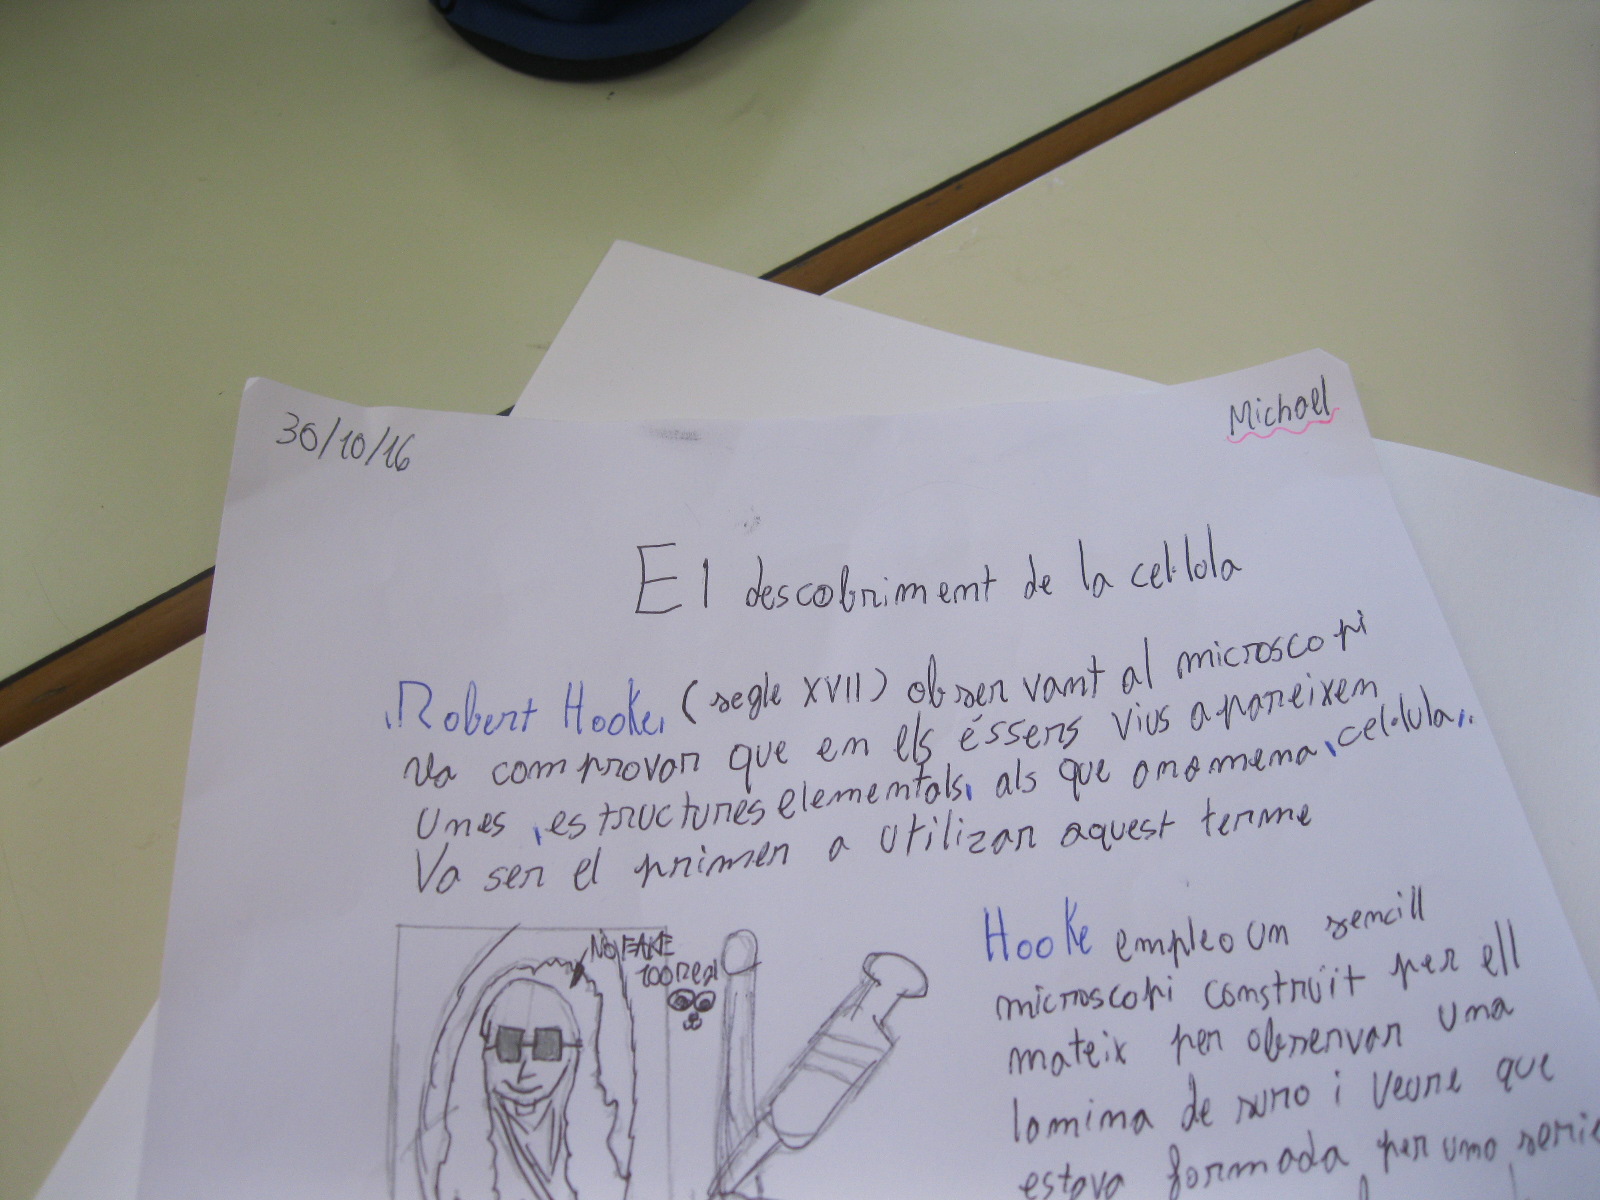 30/10/16
Michael
El descobriment de la cel·lola
Robert Hooke (segle XVII) observant al microscopi
va comprovar que en els éssers vius apareixem
unes estructures elementals, als que anamena cel·lula.
Va ser el primer a utilizar aquest terme
NO FAKE
100 real
Hooke empleo un sencill
microscopi construït per ell
mateix per observar una
lamina de suro i veure que
estava formada per una serie